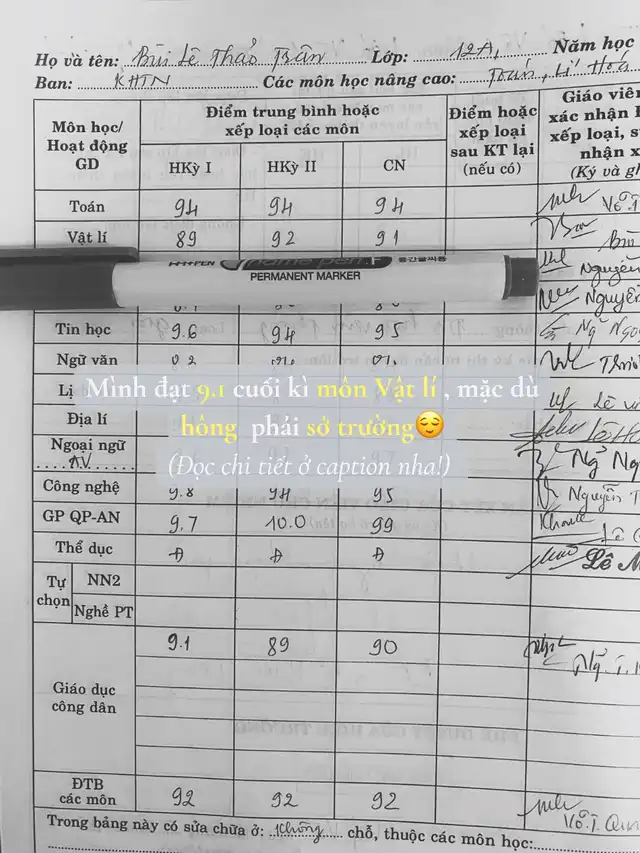 Họ và tên: Bùi Lê Thảo Trân Lớp: 12A1 Năm học
Ban: KHTN Các môn học nâng cao: Toán, Lí Hoá
Môn học/ Hoạt động GD
Điểm trung bình hoặc xếp loại các môn
HKỳ I HKỳ II CN
Điểm hoặc xếp loại sau KT lại (nếu có)
Giáo viên
xác nhận
xếp loại, s
nhận x
(Ký và gh
Toán 94 94 94
Vật lí 89 92 91 Bùi
PERMANENT MARKER
Nguyễn
Nguyễn
Tin học 9.6 94 95
Ngữ văn
Mình đạt 9.1 cuối kì môn Vật lí , mặc dù
hông phải sở trường😌
(Đọc chi tiết ở caption nha!)
Lị
Địa lí
Ngoại ngữ A.V
Công nghệ 9.8 94 95 Nguyễn T
GP QP-AN 9.7 10.0 99
Thể dục Đ Đ Đ Lê
Tự chọn NN2
Nghề PT
Giáo dục công dân 9.1 89 90
ĐTB các môn 92 92 92
Trong bảng này có sửa chữa ở: Không chỗ, thuộc các môn học: